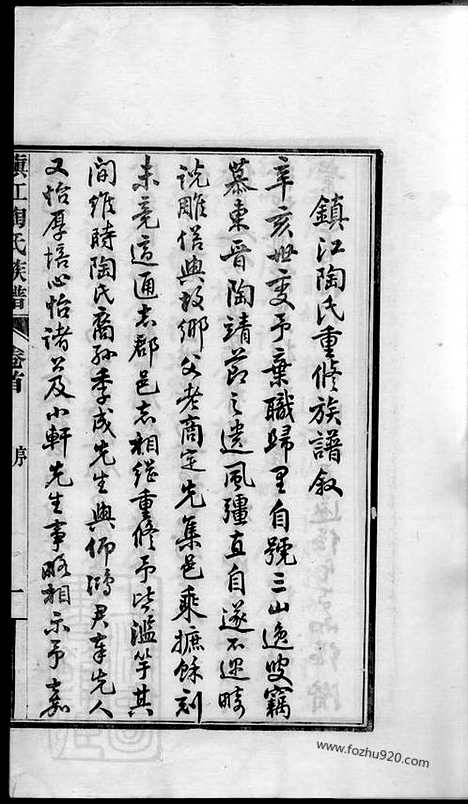 鎮江陶氏重修族譜叙
辛亥世变予棄職歸里自號三山逸叟竊
慕東晋陶靖節之遺風彊直自遂不迎時
説雕偣與故鄉父老商定先集邑乘摭餘刻
未竟適通志郡邑志相継重修予皆濫竽其
间維時陶氏裔孫季成先生與仰鴻君奉先人
又怡厚培心怡諸公及小軒先生事略相示予嘉
鎮江陶氏族譜 卷首 序 一
www.fozhu920.com